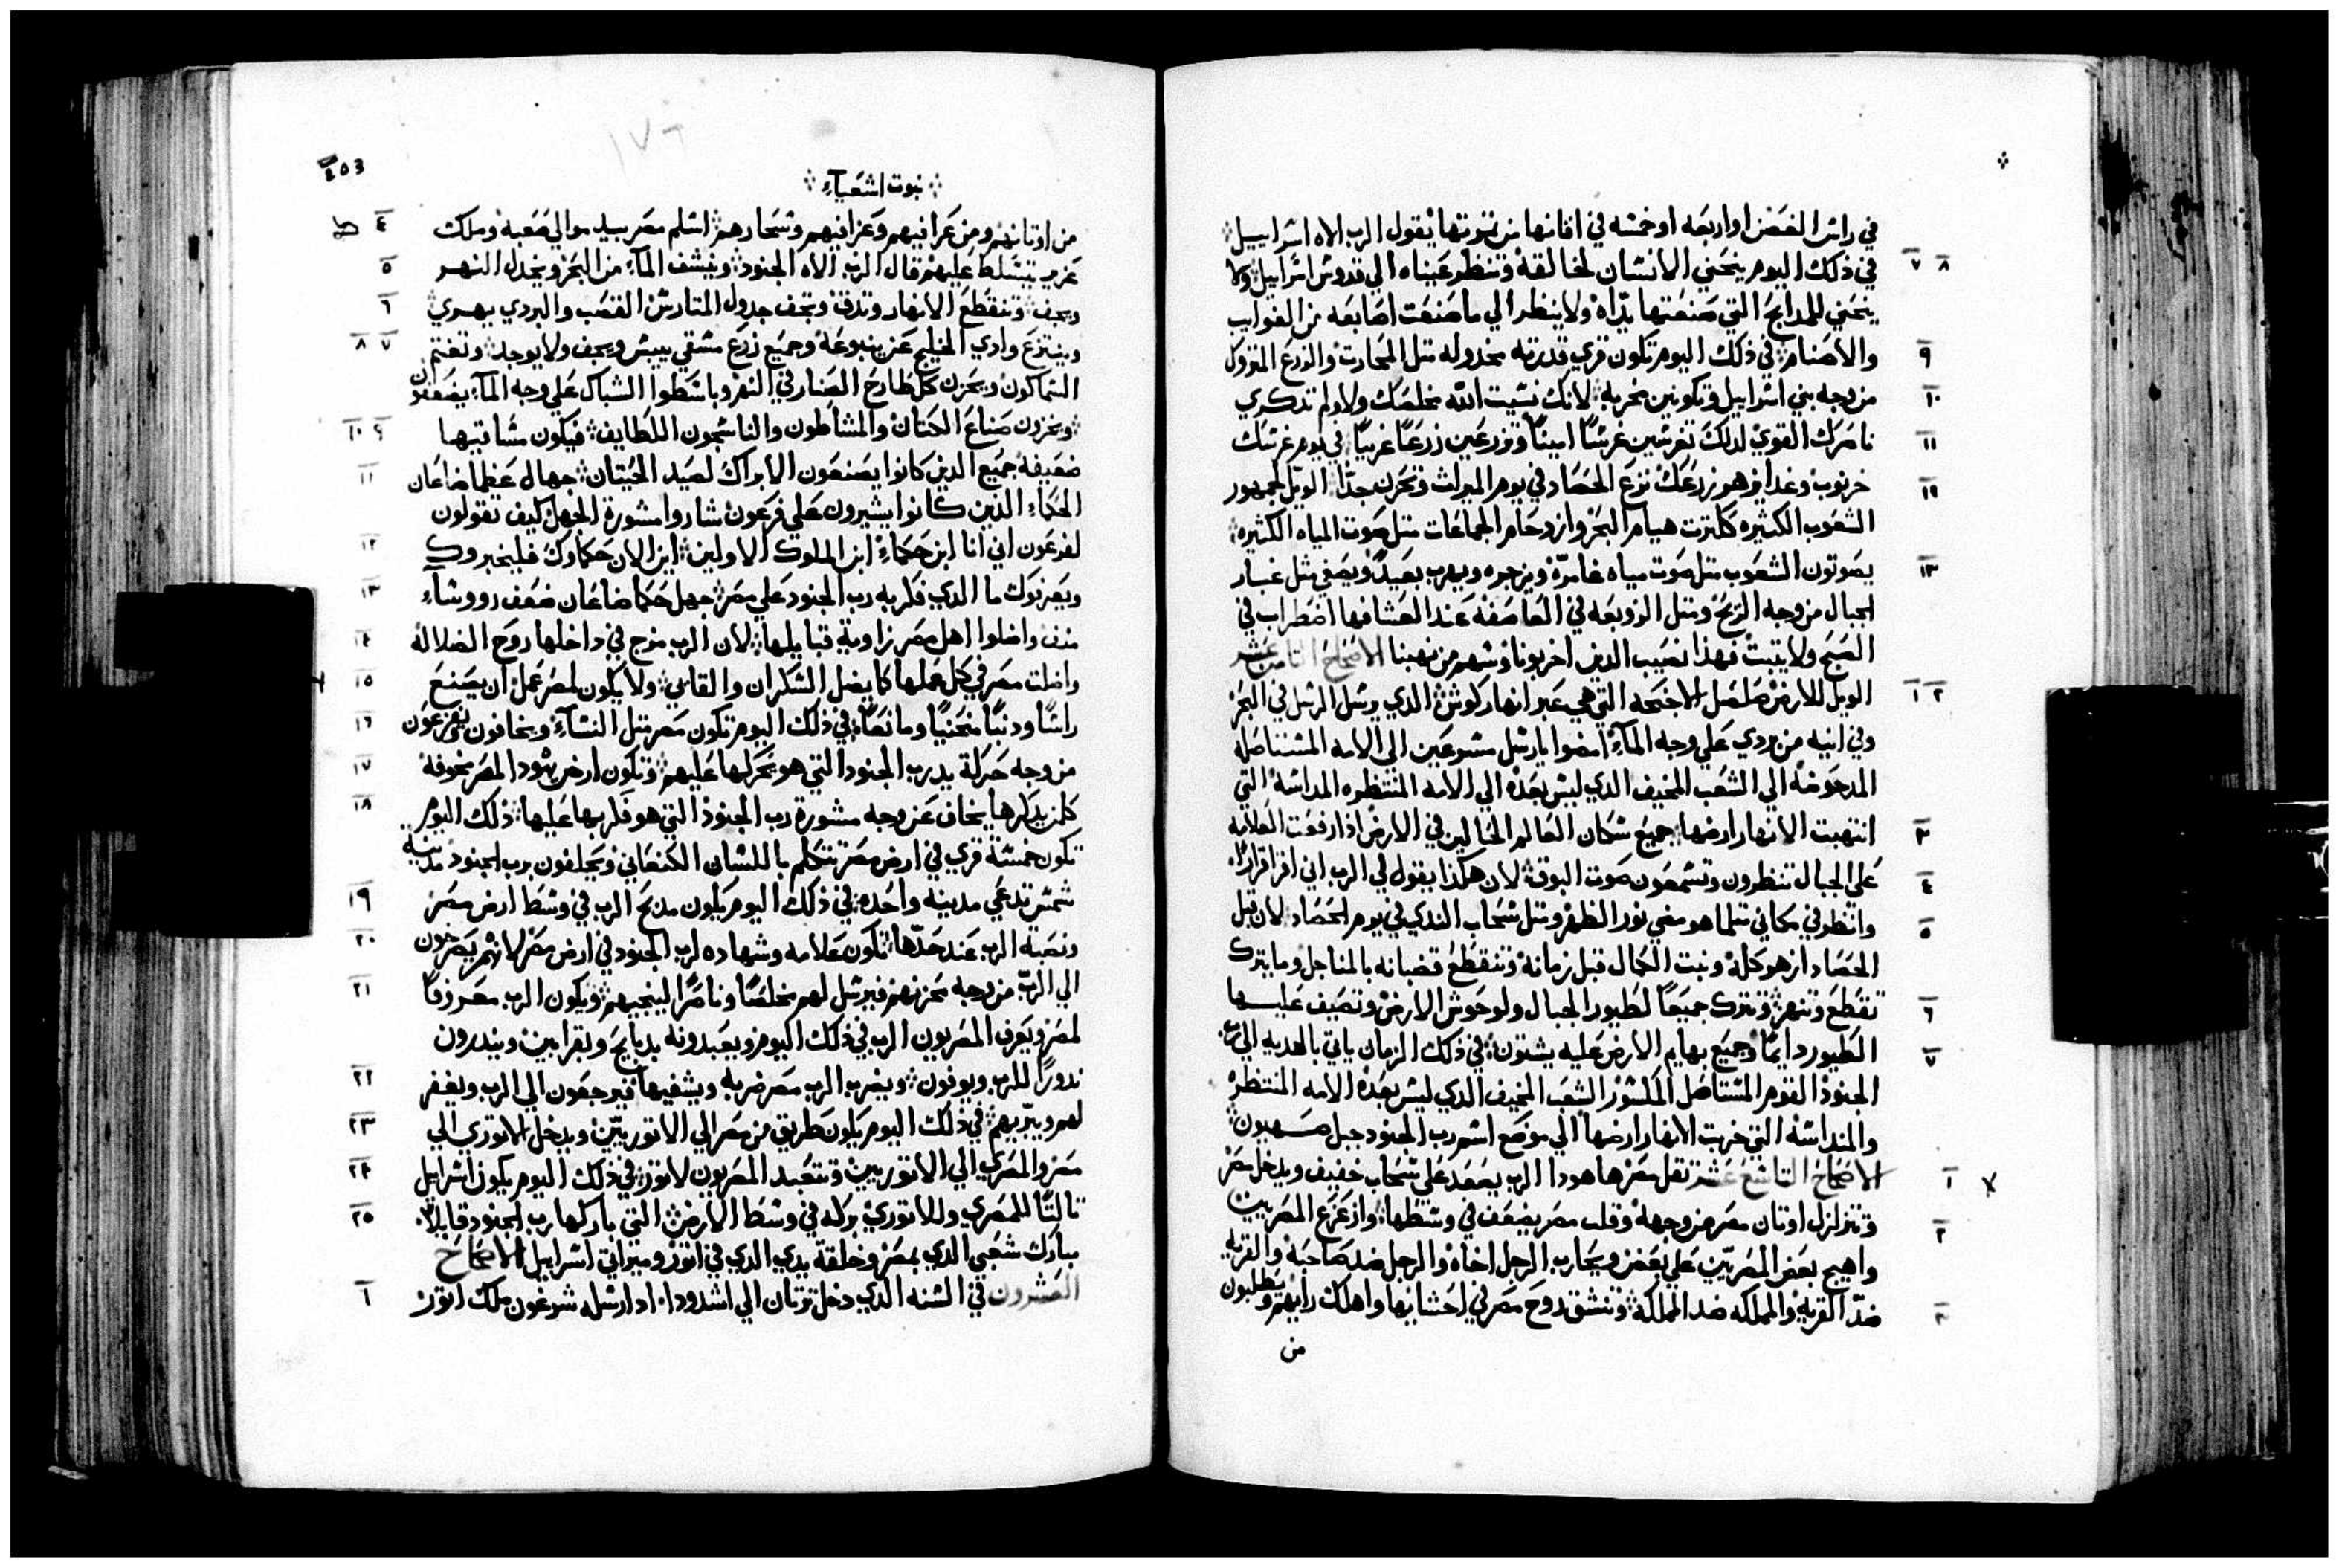 في راس الغصن او اربعه او خمسه في افنانها من تمرتها يقول الرب الاه اسراييل
٧ ٨ في ذلك اليوم ينحني الانسان لخالقه وتنظر عيناه الي قدوس اسراييل ولا
ينحني للمدابح التي صنعتها يداه ولا ينظر الي ما صنعت اصابعه من الغواب
٩ والاصنام في ذلك اليوم تكون قري قدرته مخدوله متل المحارت والزرع المتروك
١٠ من وجه بني اسراييل وتكونين مخربه لانك نسيت الله مخلصك ولم تدكري
١١ ناصرك القوي لدلك تغرسين غرسًا امينًا وتزرعين زرعًا غريبًا في يوم غرسك
١٢ خرنوب وغداه زهو زرعك نزع الحصاد في يوم الميرات وتحزن جدًا الويل لجمهور
الشعوب الكتيره ككترت هيام البحر وازدحام الجماعات متل صوت المياه الكتيره
١٣ يصوتون الشعوب متل صوت مياه غامرة ويزجره ويهرب بعيدًا ويصفي متل غبار
الجبال من وجه الريح ومتل الزوبعه في العاصفه عند العشا فها اضطراب في
الصبح ولا يتبت فهذا نصيب الدين اخربونا وسهم من نهبنا الاصحاح التامن عشر
١ ٢ الويل للارض صلصل الاجنحه التي هي عبر انهار كوش الدي يرسل الرسل في البحر
وفي انيه من بردي علي وجه المآء امضوا يا رسل مسرعين الي الامه المستاصله
المدحوضه الي الشعب المخيف الدي ليس بعده الي الامه المنتظره المداسه التي
٣ انتهبت الانهار ارضها جميع سكان العالم الحالين في الارض اذا رفعت العلامه
٤ علي الجبال تنظرون وتسمعون صوت البوق لان هكذا يقول لي الرب اني اقر قرارًا
٥ وانظر في مكاني متلما هو مضي نور الظهر ومتل سحاب الندي في يوم الحصاد لان قبل
الحصاد ازهر كله ونبت الكمال قبل زمانه وتنقطع قضبانه بالمناجل وما يترك
٦ تقطع وتنهز وتترك جميعًا لطيور الجبال ولوحوش الارض وتصيف عليها
٧ الطيور دايمًا وجميع بهايم الارض عليه يشتون في ذلك الزمان ياتي بالهديه الي رب
الجنود القوم المستاصل المكسور الشعب المخيف الدي ليس بعده الامه المنتظر
والمنداسه التي خربت الانهار ارضها الي موضع اسم رب الجنود جبل صهيون
١ الاصحاح التاسع عشر تقل مصر ها هودا الرب يصعد علي سحاب خفيف ويدخل مصر
٢ وتتزلزل اوتان مصر من وجهه وقلب مصر يضعف في وسطها وازعزع المصريين
واهيج بعض المصريين علي بعض ويحارب الرجل اخاه والرجل ضد صاحبه والقريه
٣ ضد القريه والمملكه ضد المملكه وتنشق روح مصر في احشايها واهلك رايهم ويطلبون
من
403
١٧٦
نبوت اشعيآء
٤ من اوتانهم ومن عرافيهم وعزافيهم وسحارهم اسلم مصر بيد موالي صعبه وملك
٥ عزيز يتسلط عليهم قال الرب الاه الجنود وينشف المآء من البحر ويخدل النهر
٦ ويجف وتنقطع الانهار وتدق وتجف جدول المتارس القصب والبردي يهري
٧ ٨ وينتزع وادي الخليج عن ينبوعه وجميع زرع مسقي ييبس ويجف ولا يوجد وتغتم
السماكون ويحزن كل طارح الصنار في النهر وباسطوا الشباك علي وجه المآء يضعفون
٩ ١٠ ويخزون صناع الكتان والمشاطون والناسجون اللطايف فيكون مساقيها
١١ ضعيفه جميع الدين كانوا يصنعون الابراك لصيد الحيتان جهال عظما ضاعان
الحكماء الدين كانوا يشيرون علي فرعون شاروا مشورة الجهل كيف تقولون
١٢ لفرعون اني انا ابن حكماء ابن الملوك الاولين اين الان حكماوك فليخبروك
١٣ ويعرفوك ما الدي فكر به رب الجنود علي مصر جهل حكما ضاعان ضعف رووسآء
١٤ منف واضلوا اهل مصر زاوية قبايلها لان الرب مزج في داخلها روح الضلاله
١٥ واضلت مصر في كل عملها كما يضل السكران والقاي ولا يكون لمصر عمل ان يصنع
١٦ راسًا ودنبًا منحنيًا ومانعًا في ذلك اليوم تكون مصر متل النسآء ويخافون يفزعون
١٧ من وجه حركة يد رب الجنود التي هو يحركها عليهم وتكون ارض يهودا لمصر مخوفة
١٨ كلمن يدكرها يخاف عن وجه مشورة رب الجنود التي هو فكر بها عليها ذلك اليوم
تكون خمسة قري في ارض مصر تتكلم باللسان الكنعاني ويحلفون برب الجنود مدينة
١٩ شمس تدعي مدينه واحده في ذلك اليوم يكون مدبح الرب في وسط ارض مصر
٢٠ ونصبة الرب عند حدها تكون علامه وشهاده لرب الجنود في ارض مصر لانهم يصرخون
٢١ الي الرب من وجه محزنهم فيرسل لهم مخلصًا وناصرًا لينجيهم ويكون الرب معروفًا
لمصر ويعرف المصريون الرب في ذلك اليوم ويعبدونه بدبايح وبقرابين وينذرون
٢٢ ندورًا للرب ويوفون ويضرب الرب مصر ضربه ويشفيها فيرجعون الي الرب ويغفر
٢٣ لهم ويبريهم في ذلك اليوم يكون طريق من مصر الي الاتوريين ويدخل الاتوري الي
٢٤ مصر والمصري الي الاتوريين وتتعبد المصريون لاتور في ذلك اليوم يكون اسراييل
٢٥ تالتًا للمصري وللاتوري بركه في وسط الارض التي باركها رب الجنود قايلًا
مبارك شعبي الدي بمصر وخلقة يدي الدي في اتور وميراتي اسراييل الاصحاح
١ العشرون في السنه الدي دخل ترتان الي اشدود اد ارسله سرغون ملك اتور